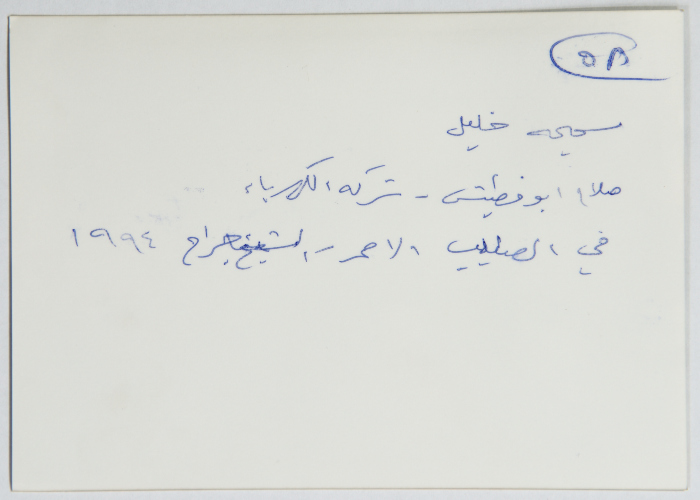 ٥٨
سميحه خليل
صلاح ابو قطيش - شركة الكهرباء
في الصليب الاحمر - الشيخ جراح ١٩٩٤